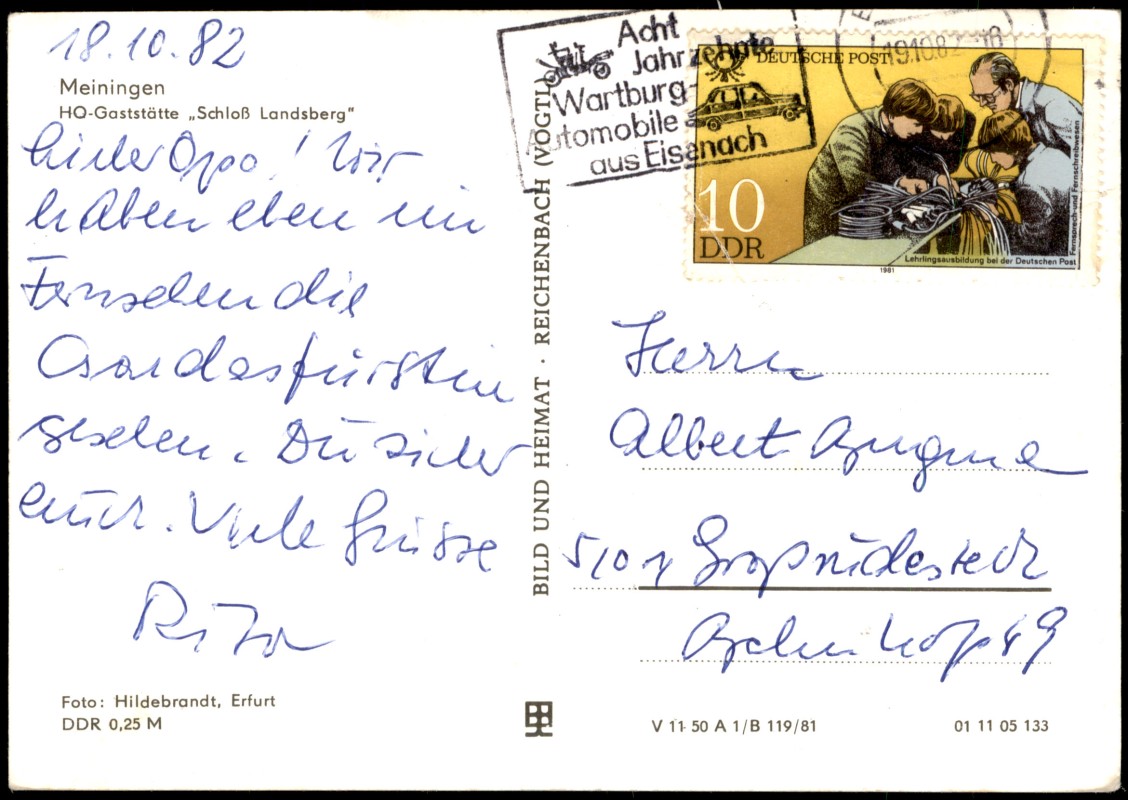 18.10.82
Meiningen
HO-Gaststätte „Schloß Landsberg“
Lieber Opa! Wir
haben eben im
Fernsehen die
Csardasfürstin
gesehen. Du sicher
auch. Viele Grüsse
Rita
Foto: Hildebrandt, Erfurt
DDR 0,25 M
BILD UND HEIMAT · REICHENBACH (VOGTL
Acht
Jahrzehnte
Wartburg-
Automobile
aus Eisenach
19.10.82
DEUTSCHE POST
10
DDR
Lehrlingsausbildung bei der Deutschen Post
Fernsprech- und Fernschreibwesen
1981
Herrn
Albert
5101 Großrudestedt
49
V 11 50 A 1/B 119/81
01 11 05 133